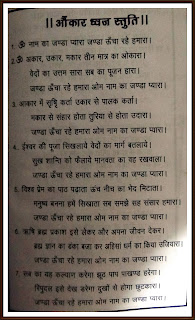 ॥ ओंकार ध्वज स्तुति ॥
1. ॐ नाम का जण्डा प्यारा जण्डा ऊँचा रहे हमारा।
2. ॐ अकार, उकार, मकार तीन मात्र का ओंकारा।
वेदों का उत्तम सारा सब का पूजन हारा।
जण्डा ऊँचा रहे हमारा ओम नाम का जण्डा प्यारा।
3. आकार में सृष्टि कर्ता उकार से पालक कर्ता।
मकार से संहार होता तुरिया से होता उदारा।
जण्डा ऊँचा रहे हमारा ओम नाम का जण्डा प्यारा।
4. ईश्वर की पूजा सिखलावे वेदों का मार्ग बतलावे।
सुख शान्ति को फैलावे मानवता का वह रखवाला।
जण्डा ऊँचा रहे हमारा ओम नाम का जण्डा प्यारा।
5. विश्व प्रेम का पाठ पढ़ाता ऊंच नीच का भेद मिटाता।
मनुष्य बनना हमे सिखाता सब समझे सह संसार हमारा।
जण्डा ऊँचा रहे हमारा ओम नाम का जण्डा प्यारा।
6. ऋषि ब्रह्म प्रकाश इसे लेकर और अपना जीवन देकर।
ब्रह्म ज्ञान का डंका बजा कर अहिंसां धर्म का किया उजियारा।
जण्डा ऊँचा रहे हमारा ओम नाम का जण्डा प्यारा।
7. सब का यह कल्याण करेगा झूठ पाप पाखण्ड हरेगा।
रिपुदल इसे देख डरेगा दुखों से होगा छुटकारा।
जण्डा ऊँचा रहे हमारा ओम नाम का जण्डा प्यारा।